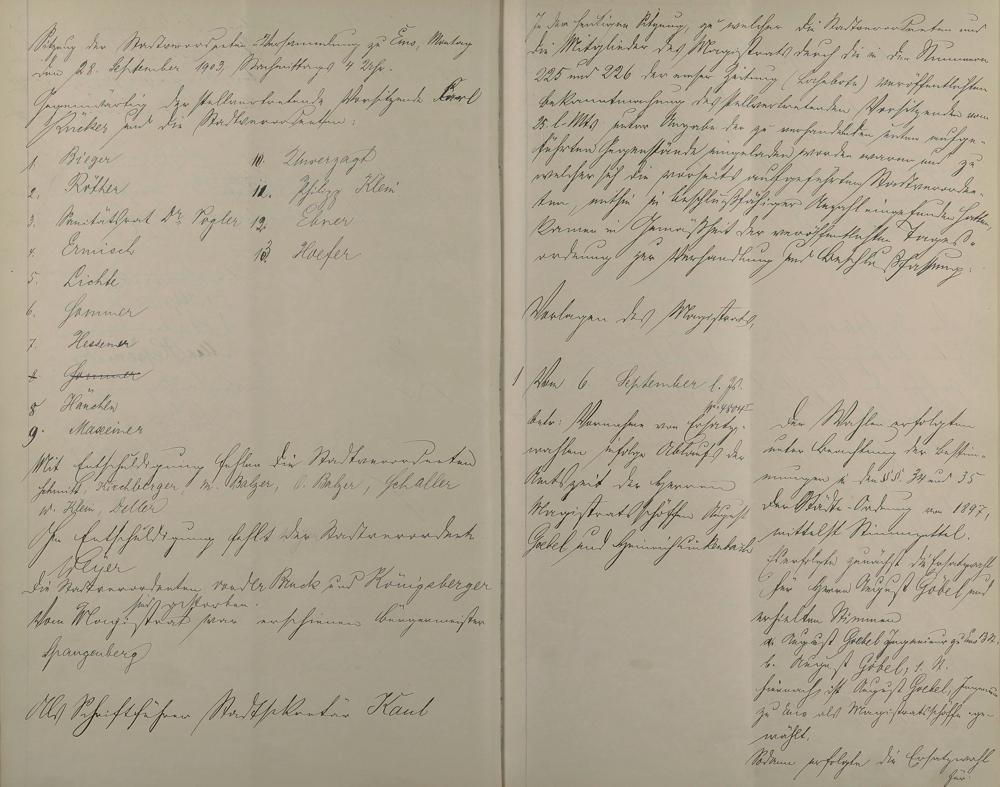 Sitzung der Stadtverordneten-Versammlung zu Ems, Montag
den 28. September 1903, Nachmittags 4 Uhr.
Gegenwärtig der stellvertretende Vorsitzende Karl
Rücker und die Stadtverordneten:
1. Bieger
2. Röther
3. Sanitätsrat Dr. Vogler
4. Ermisch
5. Lichte
6. Sommer
7. Hessemer
8 Sommer
8 Hänchen
9. Maxeiner
10. Unverzagt
11. Philipp Klein
12. Ebner
13 Hoefer
Mit Entschuldigung fehlen die Stadtverordneten
Schmitt, Kirchberger, M. Balzer, Balzer, Schaller
W. Klein, Deller
Ohne Entschuldigung fehlt der Stadtverordnete
Meyer
Die Stadtverordneten von der Bruck und Königsberger
sind gestorben.
Vom Magistrat war erschienen Bürgermeister
Spangenberg
Als Schriftführer Stadtsekretär Kaul
In der heutigen Sitzung, zu welcher die Stadtverordneten und
die Mitglieder des Magistrats durch die in den Nummern
225 und 226 der Emser Zeitung (Lahnbote) veröffentlichten
Bekanntmachung des stellvertretenden Vorsitzenden vom
25. l. Mts unter Angabe der zu verhandelnden unten aufge-
führten Gegenstände eingeladen worden waren und zu
welcher sich die vorseits aufgeführten Stadtverordne-
ten, mithin in beschlußfähiger Anzahl eingefunden hatten,
kamen in Gemäßheit der veröffentlichten Tages-
ordnung zur Verhandlung und Beschlußfassung:
Vorlagen des Magistrats,
1 Vom 6. September l. Js.
Nr. 4804 I
betr: Vornahme von Ersatz-
wahlen infolge Ablaufs der
Amtszeit der Herren
Magistratsschöffen August
Goebel und Heinrich Linkenbach
Die Wahlen erfolgten
unter Beachtung der Bestim-
mungen in den §§. 34 und 35
der Städte-Ordnung von 1897,
mittelst Stimmzettel.
Es erfolgte zunächst die Ersatzwahl
für Herrn August Göbel und
erhielten Stimmen
a. August Goebel Ingenieur zu Ems 13 St.
b. August Göbel, 1 St.
Hiernach ist August Goebel, Ingenieur
zu Ems als Magistratsschöffe ge-
wählt.
Sodann erfolgte die Ersatzwahl
für